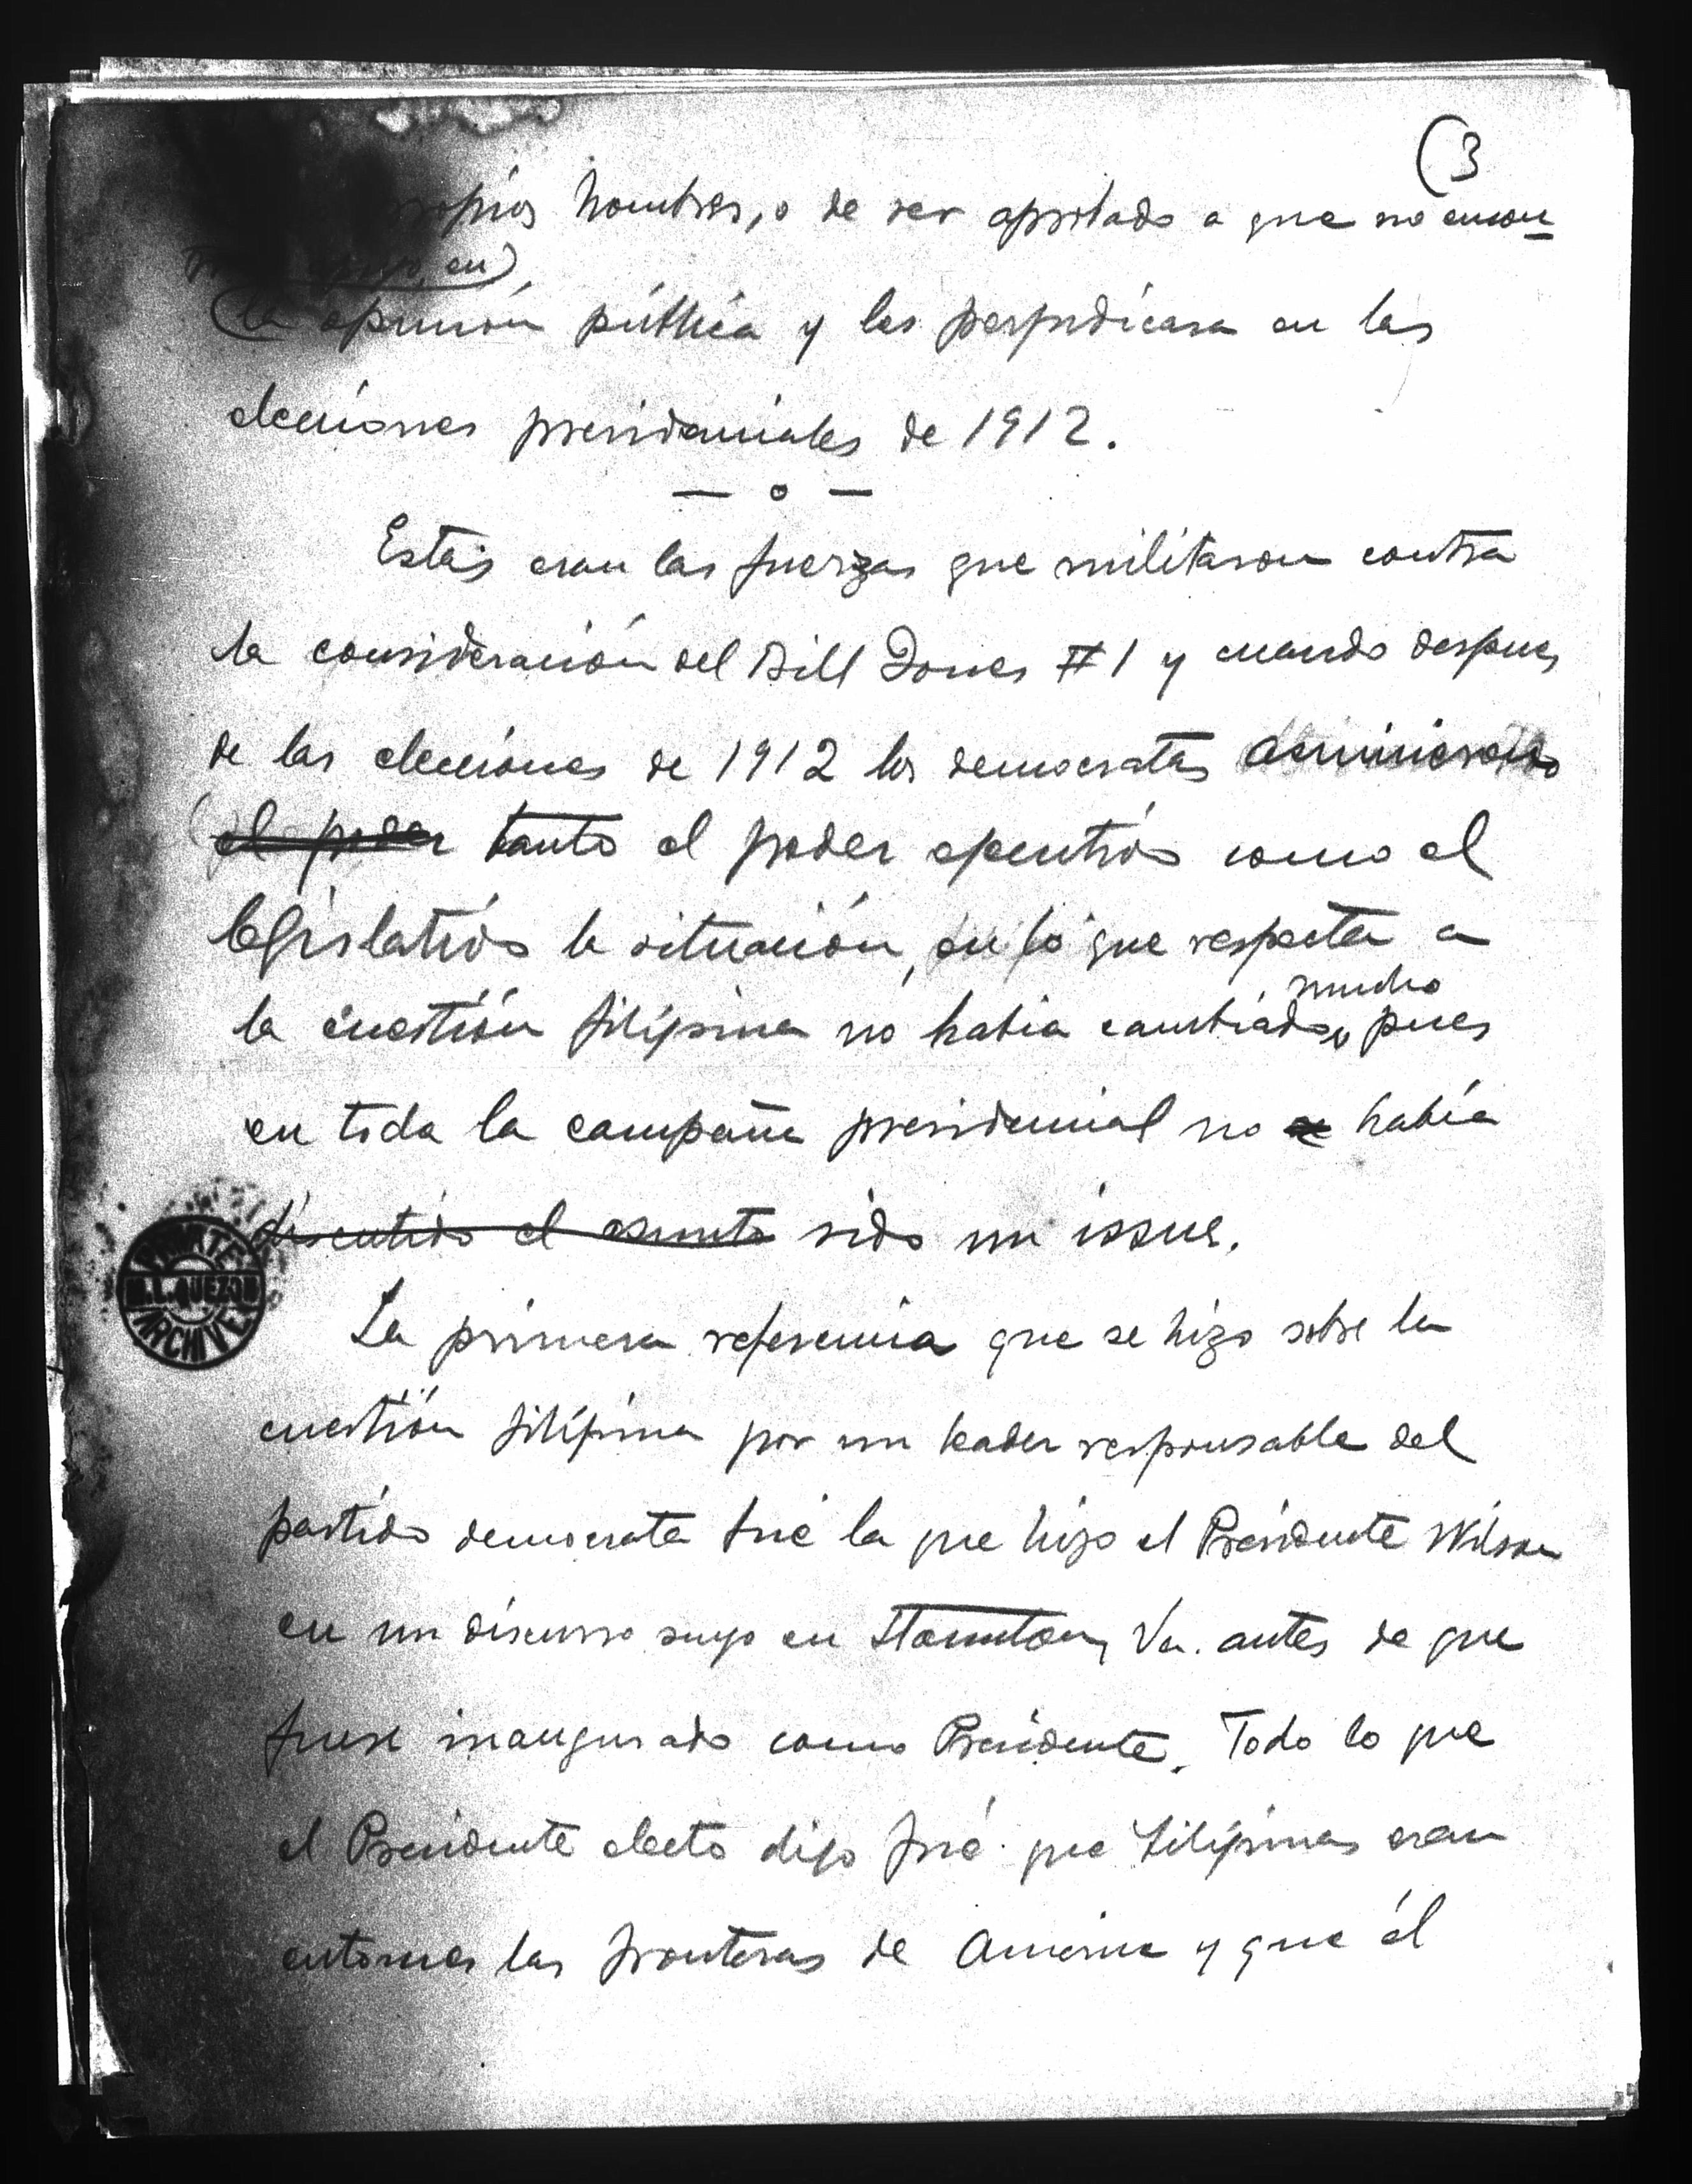 (3
hombres, o de ser aprobado a que no encon
en)
(la opinión pública y les perjudicara en las
elecciones presidenciales de 1912.
— o —
Estas eran las fuerzas que militaron contra
la consideración del Bill Jones #1 y cuando despues
de las elecciones de 1912 los democratas
el poder tanto el poder ejecutivo como el
legislativo la situación, en lo que respecta a
mucho
la cuestión filipina no habia cambiado, pues
en toda la campaña presidencial no se había
discutido el asunto sido un issue.
PRIVATE
M.L. QUEZON
ARCHIVE
La primera referencia que se hizo sobre la
cuestión filipina por un leader responsable del
partido democrata fué la que hizo el Presidente Wilson
en un discurso suyo en Staunton, Va. antes de que
fuese inaugurado como Presidente. Todo lo que
el Presidente electo dijo fué que Filipinas eran
entonces las fronteras de America y que él